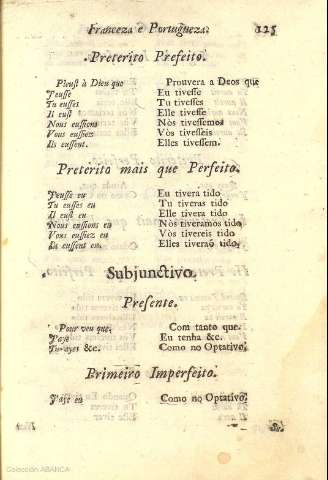 Franceza e Portugueza. 125
Preterito Prefeito.
Pleust à Dieu que Prouvera a Deos que
J'eusse Eu tivesse
Tu eusses Tu tivesses
Il eust Elle tivesse
Nous eussions Nòs tivessemos
Vous eussiez Vòs tivesseis
Ils eussent. Elles tivessem.
Preterito mais que Perfeito.
J'eusse eu Eu tivera tido
Tu eusses eu Tu tiveras tido
Il eust eu Elle tivera tido
Nous eussions eu Nòs tiveramos tido
Vous eussiez eu Vòs tivereis tido
Ils eussent eu. Elles tiveraõ tido.
Subjunctivo.
Presente.
Pour veu que. Com tanto que.
J'aye Eu tenha &c.
Tu ayes &c. Como no Optativo.
Primeiro Imperfeito.
J'aye eu Como no Optativo.
Colección ABANCA